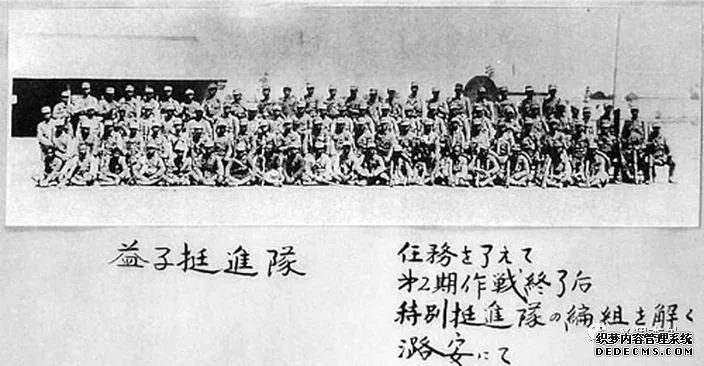 益子挺進隊
任務を了えて
第2期作戦終了后
特別挺進隊の編組を解く
潞安にて
织梦内容管理系统
DEDECMS.COM